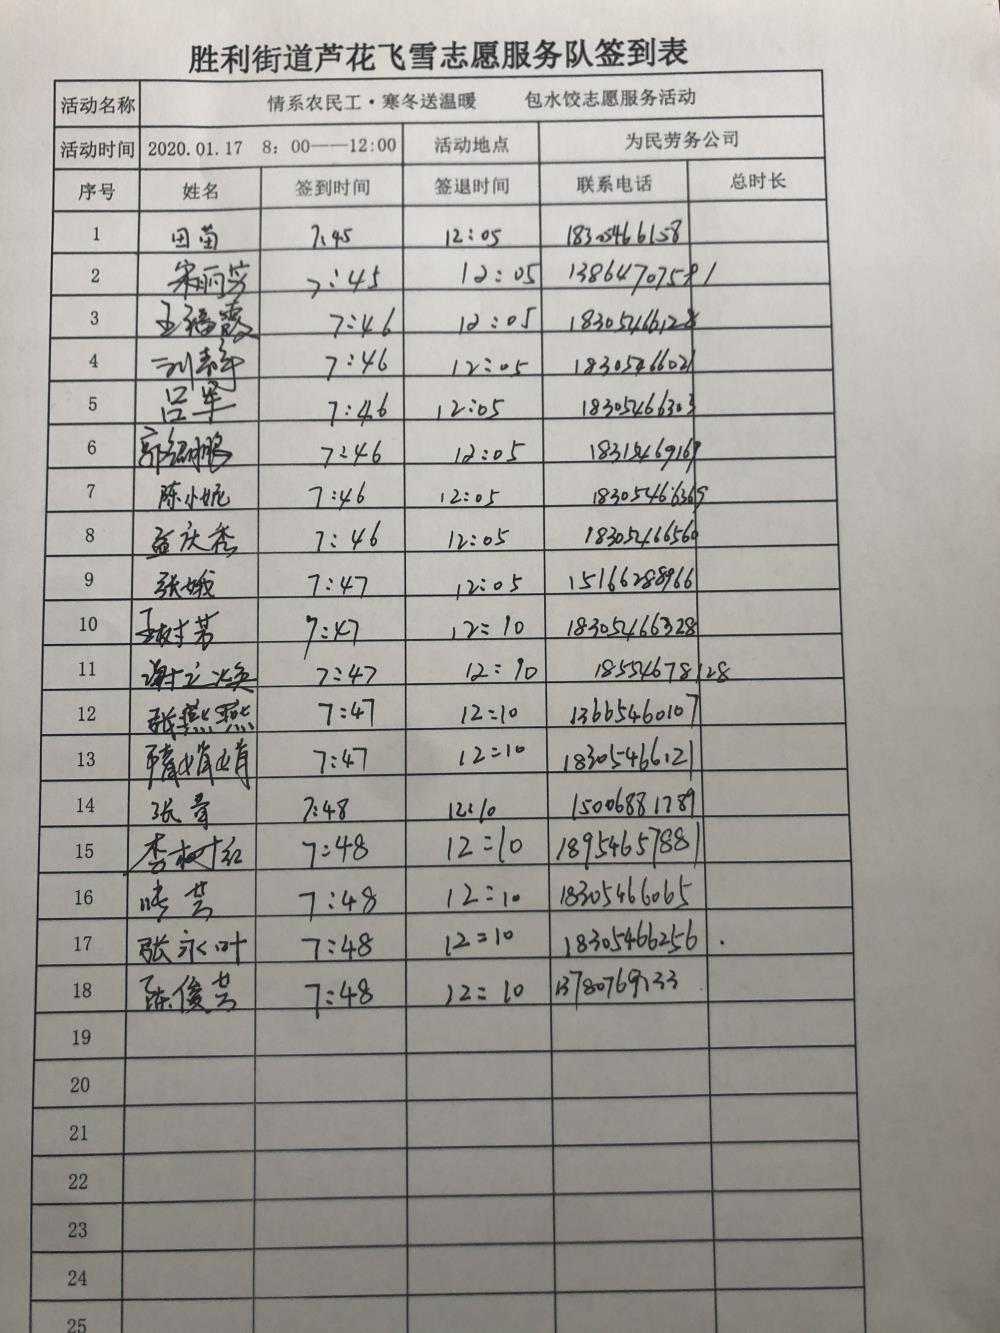 胜利街道芦花飞雪志愿服务队签到表
活动名称 情系农民工·寒冬送温暖 包水饺志愿服务活动
活动时间 2020.01.17 8：00——12:00 活动地点 为民劳务公司
序号 姓名 签到时间 签退时间 联系电话 总时长
1 田苗 7:45 12:05 18305466158
2 宋丽芳 7:45 12:05
3 王福霞 7:46 12:05 18305466128
4 刘静 7:46 12:05 18305466021
5 吕军 7:46 12:05 18305466303
6 7:46 12:05 18315469169
7 陈小妮 7:46 12:05 18305466369
8 孟庆秀 7:46 12:05 18305466560
9 张娥 7:47 12:05 15166288966
10 王树芳 7:47 12:10 18305466328
11 谢立焕 7:47 12:10 18554678128
12 张燕燕 7:47 12:10 13665460107
13 隋娟娟 7:47 12:10 18305466121
14 张 7:48 12:10 15006881789
15 李树红 7:48 12:10 18954657881
16 7:48 12:10 18305466065
17 张永叶 7:48 12:10 18305466256
18 陈俊芸 7:48 12:10 13780769133
19
20
21
22
23
24
25